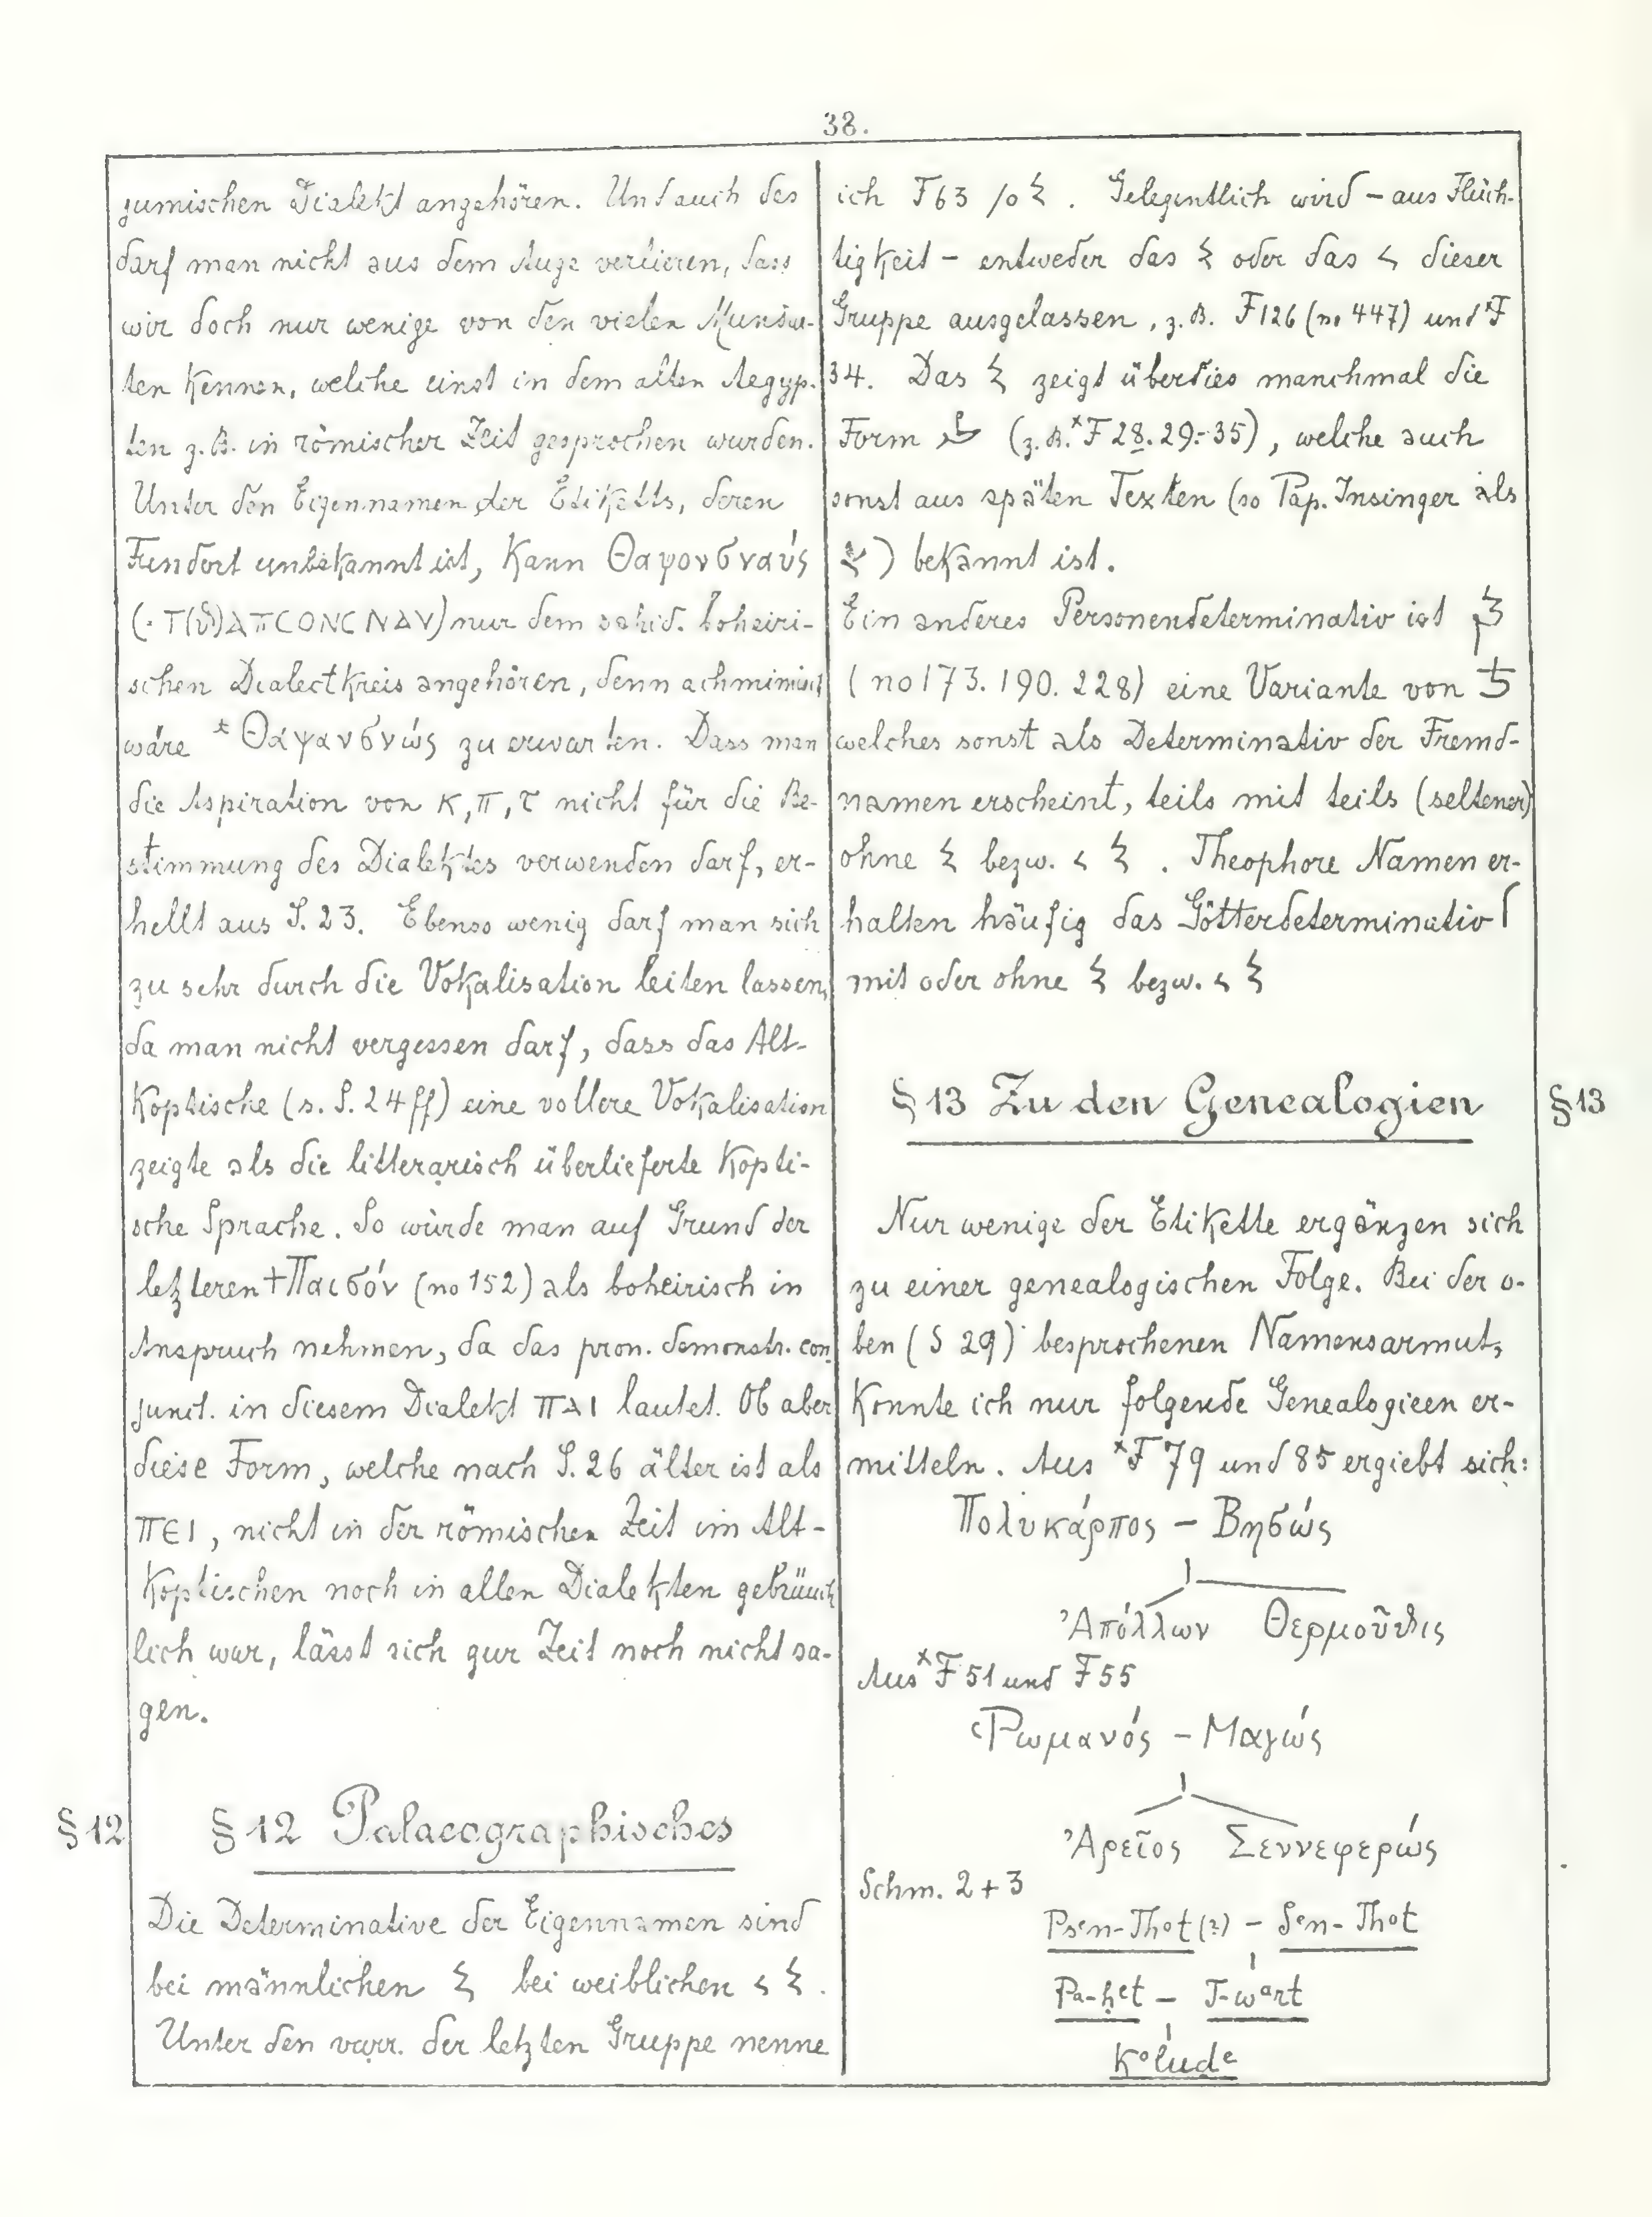 38.
jumischen Dialekt angehören. Und auch das
darf man nicht aus dem Auge verlieren, dass
wir doch nur wenige von den vielen Mundar-
ten kennen, welche einst in dem alten Aegyp-
ten z.B. in römischer Zeit gesprochen wurden.
Unter den Eigennamen der Etiketts, deren
Fundort unbekannt ist, kann Θαψονσναύς
nur dem sahid. boheiri-
schen Dialectkreis angehören, denn achmimisch
wäre *Θαψανσνώς zu erwarten. Dass man
die Aspiration von κ, π, τ nicht für die Be-
stimmung des Dialektes verwenden darf, er-
hellt aus S. 23. Ebenso wenig darf man sich
zu sehr durch die Vokalisation leiten lassen,
da man nicht vergessen darf, dass das Alt-
Koptische (s. S. 24 ff) eine vollere Vokalisation
zeigte als die litterarisch überlieferte Kopti-
sche Sprache. So würde man auf Grund der
letzteren +Παισόν (no 152) als boheirisch in
Anspruch nehmen, da das pron. demonstr. con
junct. in diesem Dialekt ⲡⲁⲓ lautet. Ob aber
diese Form, welche nach S. 26 älter ist als
ⲡⲉⲓ, nicht in der römischen Zeit im Alt-
Koptischen noch in allen Dialekten gebräuch
lich war, lässt sich zur Zeit noch nicht sa-
gen.
§ 12
§ 12 Palaeographisches
Die Determinative der Eigennamen sind
bei männlichen bei weiblichen
Unter den varr. der letzten Gruppe nenne
ich F63 . Gelegentlich wird – aus Flüch-
tigkeit – entweder das oder das dieser
Gruppe ausgelassen, z.B. F126 (no 447) und *F
34. Das zeigt überdies manchmal die
Form (z.B. *F 28. 29. 35), welche auch
sonst aus späten Texten (so Pap. Insinger als
) bekannt ist.
Ein anderes Personendeterminativ ist
(no 173. 190. 228) eine Variante von
welches sonst als Determinativ der Fremd-
namen erscheint, teils mit teils (seltener)
ohne bezw. . Theophore Namen er-
halten häufig das Götterdeterminativ
mit oder ohne bezw.
§ 13 Zu den Genealogien
§ 13
Nur wenige der Etikette ergänzen sich
zu einer genealogischen Folge. Bei der o-
ben (S 29) besprochenen Namensarmut,
konnte ich nur folgende Genealogieen er-
mitteln. Aus *F 79 und 85 ergiebt sich:
Πολυκάρπος – Βησώς
Ἀπόλλων Θερμοῦθις
Aus *F 51 und F 55
Ῥωμανός – Μαγώς
Ἀρεῖος Σεννεφερώς
Schm. 2 + 3
Psen-Thot (?) – Sen-Thot
Pa-ḥet – T-wart
Kolude